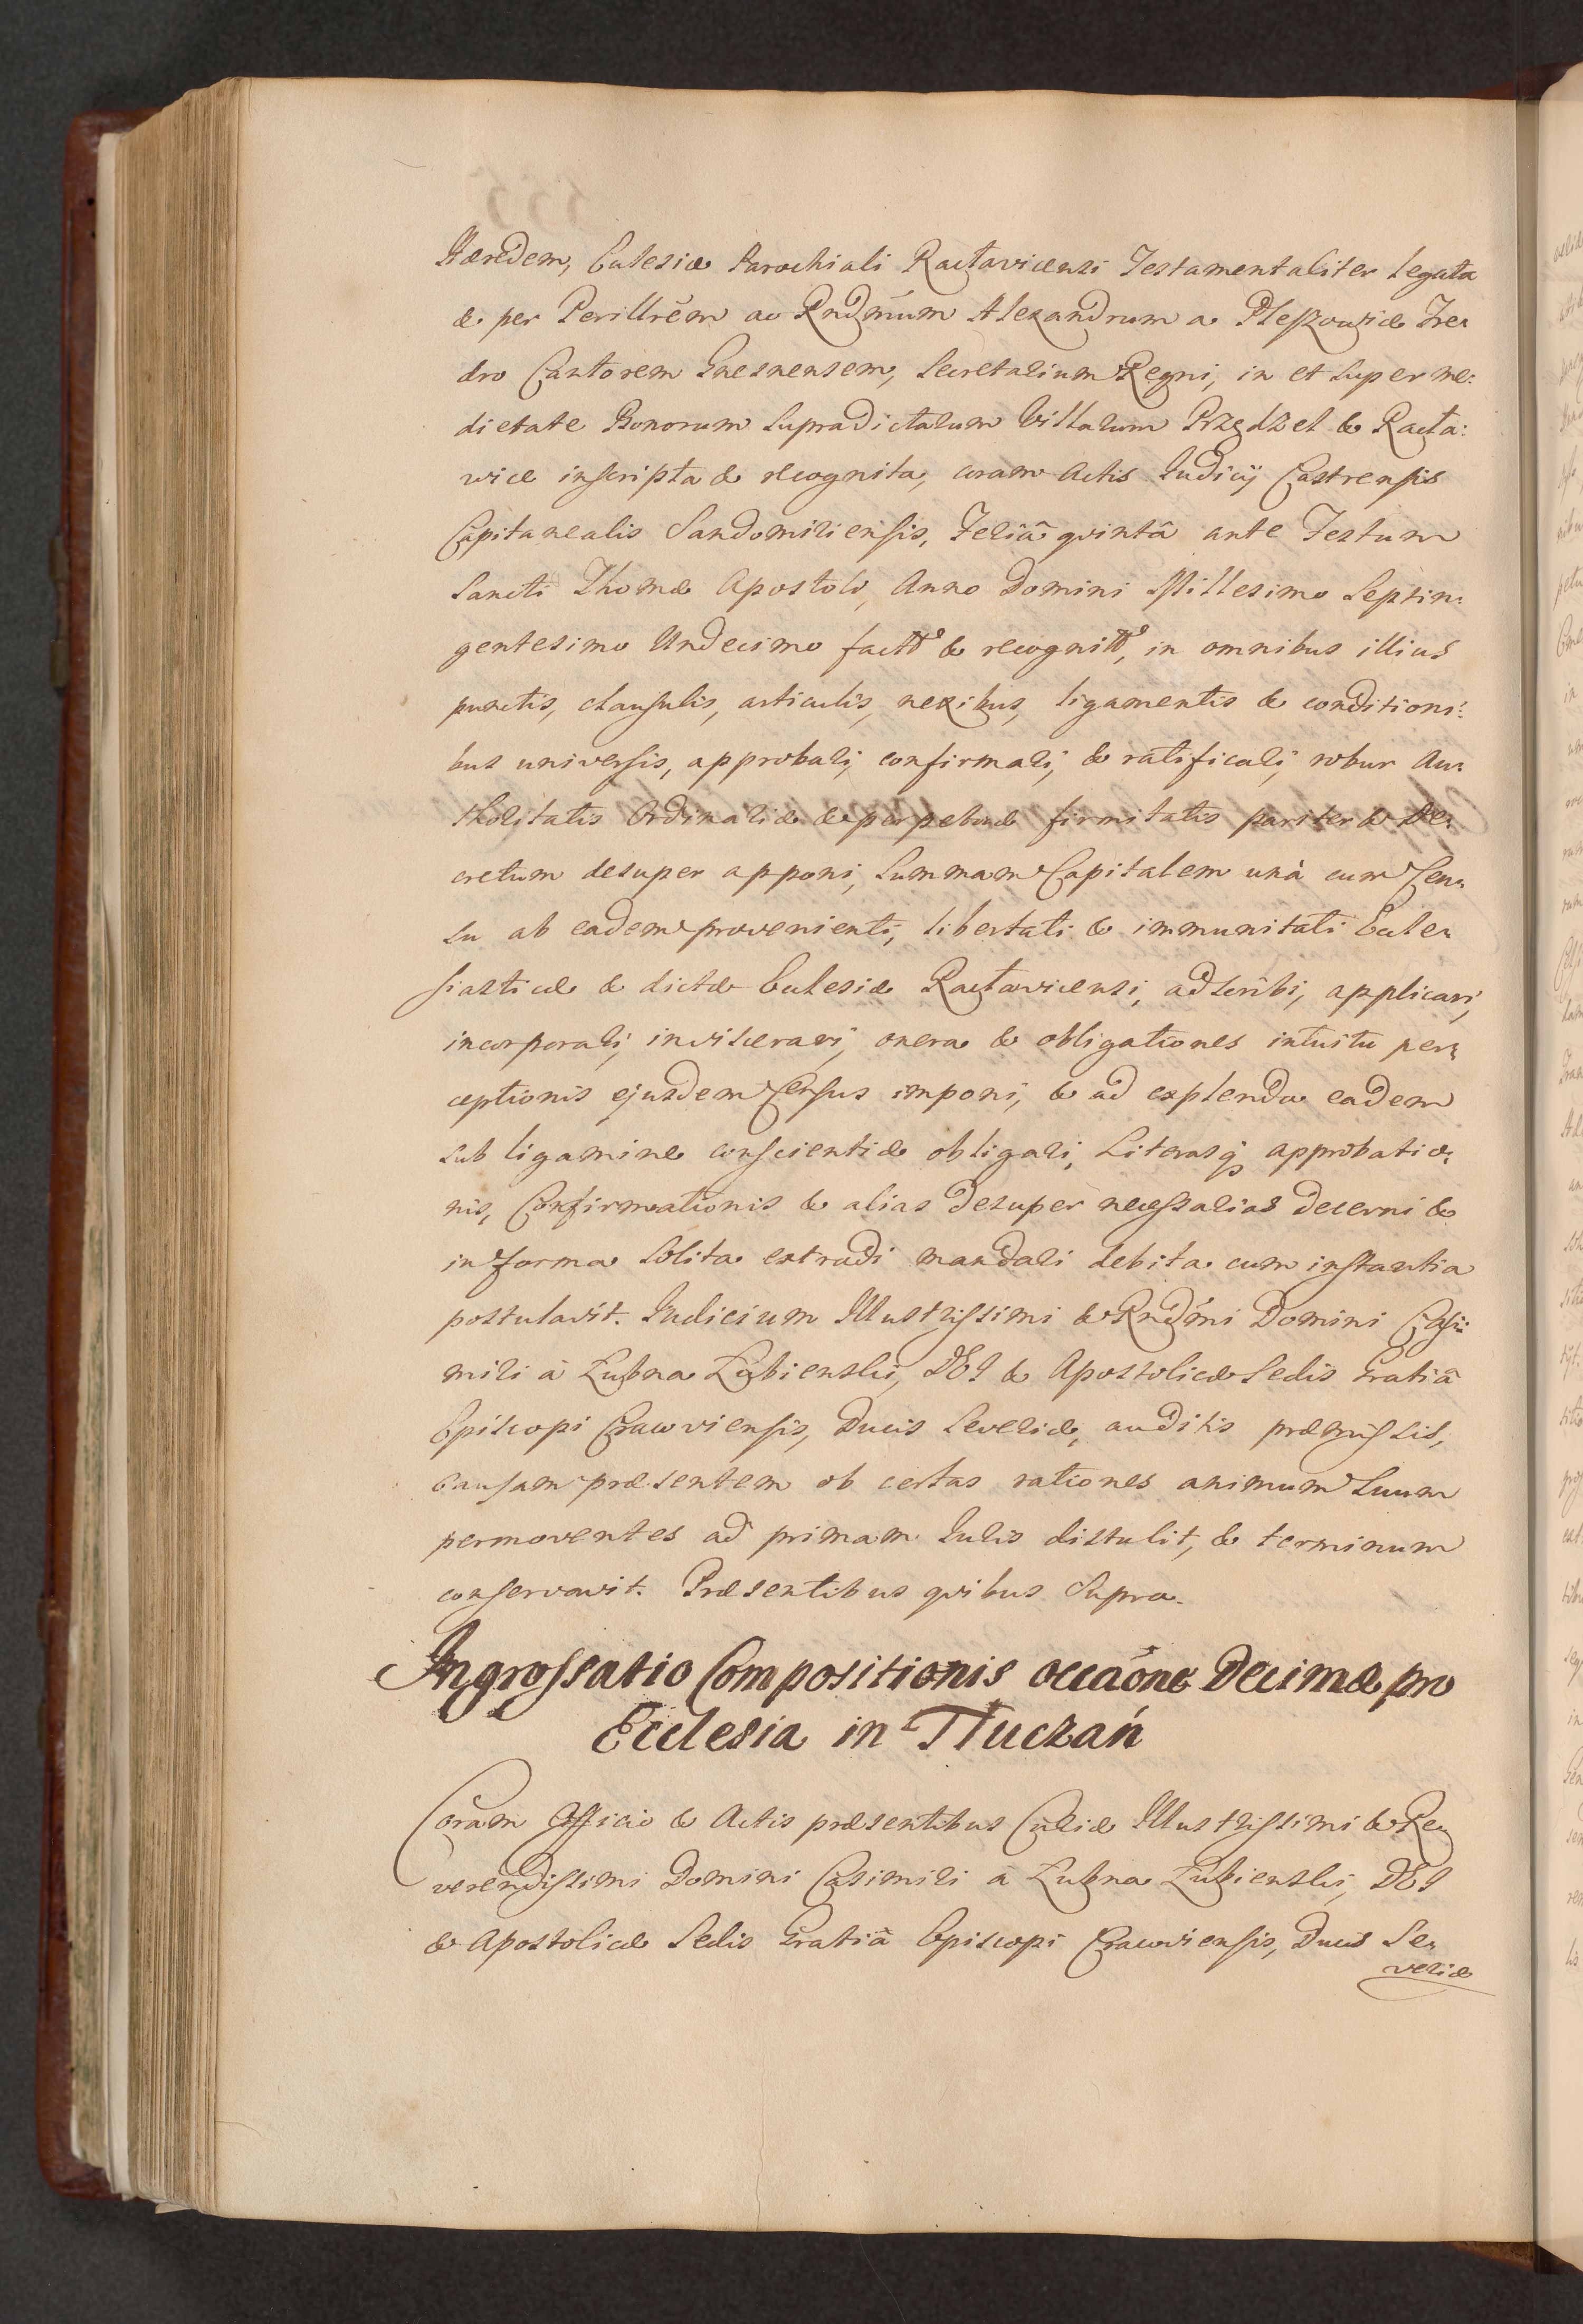 Hæredem, Ecclesiæ Parochiali Racławicensi Testamentaliter legata
& per Perillrem ac Rndmum Alexandrum a Pleszowice Fre:
dro Cantorem Gnesnensem, Secretarium Regni, in et super me:
dietate Bonorum supradictarum Villarum Przędzel & Racła:
wice inscripta & recognita, coram Actis Judicij Castrensis
Capitanealis Sandomiriensis, Feriâ qvintâ ante Festum
Sancti Thomæ Apostoli, Anno Domini Millesimo Septin:
gentesimo Undecimo factt & recognitt, in omnibus illius
punctis, clausulis, articulis, nexibus, ligamentis & conditioni:
bus universis, approbari, confirmari, & ratificari, robur Au:
thoritatis Ordinariæ & perpetuæ firmitatis pariter & De:
cretum desuper apponi, Summam Capitalem unà cum Cen:
su ab eadem provenienti, libertati & immunitati Eccle:
siasticæ & dictæ Ecclesiæ Racławicensi, adscribi, applicari,
incorporari, inviscerari, onera & obligationes intuitu per:
ceptionis ejusdem Census imponi, & ad explenda eadem
sub ligamine conscientiæ obligari, Literasq approbatio:
nis, Confirmationis & alias desuper necessarias decerni &
in forma solita extradi mandari debita cum instantia
postulavit. Judicium Illustrissimi & Rndmi Domini Casi:
miri à Łubna Łubienski, DEI & Apostolicæ Sedis Gratiâ
Episcopi Cracoviensis, Ducis Severiæ, auditis præmissis,
Causam præsentem ob certas rationes animum Suum
permoventes ad primam Juris distulit, & terminum
conservavit. Præsentibus qvibus Supra.
Ingrossatio Compositionis occaone Decimæ pro
Ecclesia in Tłuczań
Coram Officio & Actis præsentibus Curiæ Illustrissimi & Re:
verendissimi Domini Casimiri à Łubna Łubienski, DEI
& Apostolicæ Sedis Gratiâ Episcopi Cracoviensis, Ducis Se:
veriæ